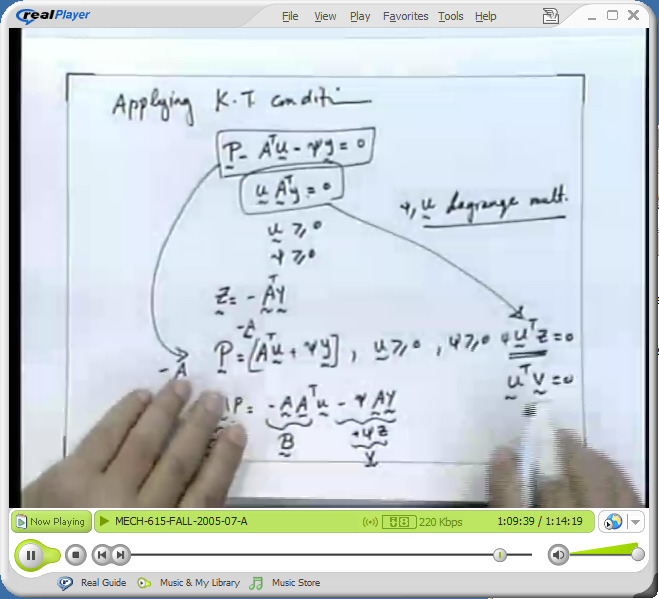 realPlayer
File View Play Favorites Tools Help
Applying K.T. conditi
P - Aᵀu - ψy = 0
u Aᵀy = 0
ψ, u Lagrange mult.
u ≥ 0
ψ ≥ 0
Z = - AᵀY
-A
P = [Aᵀu + ψy], u ≥ 0, ψ ≥ 0 ψ uᵀZ = 0
- A
uᵀV = 0
P = - A Aᵀu - ψ AY
B
+ψZ
Now Playing
MECH-615-FALL-2005-07-A
220 Kbps
1:09:39 / 1:14:19
Real Guide
Music & My Library
Music Store